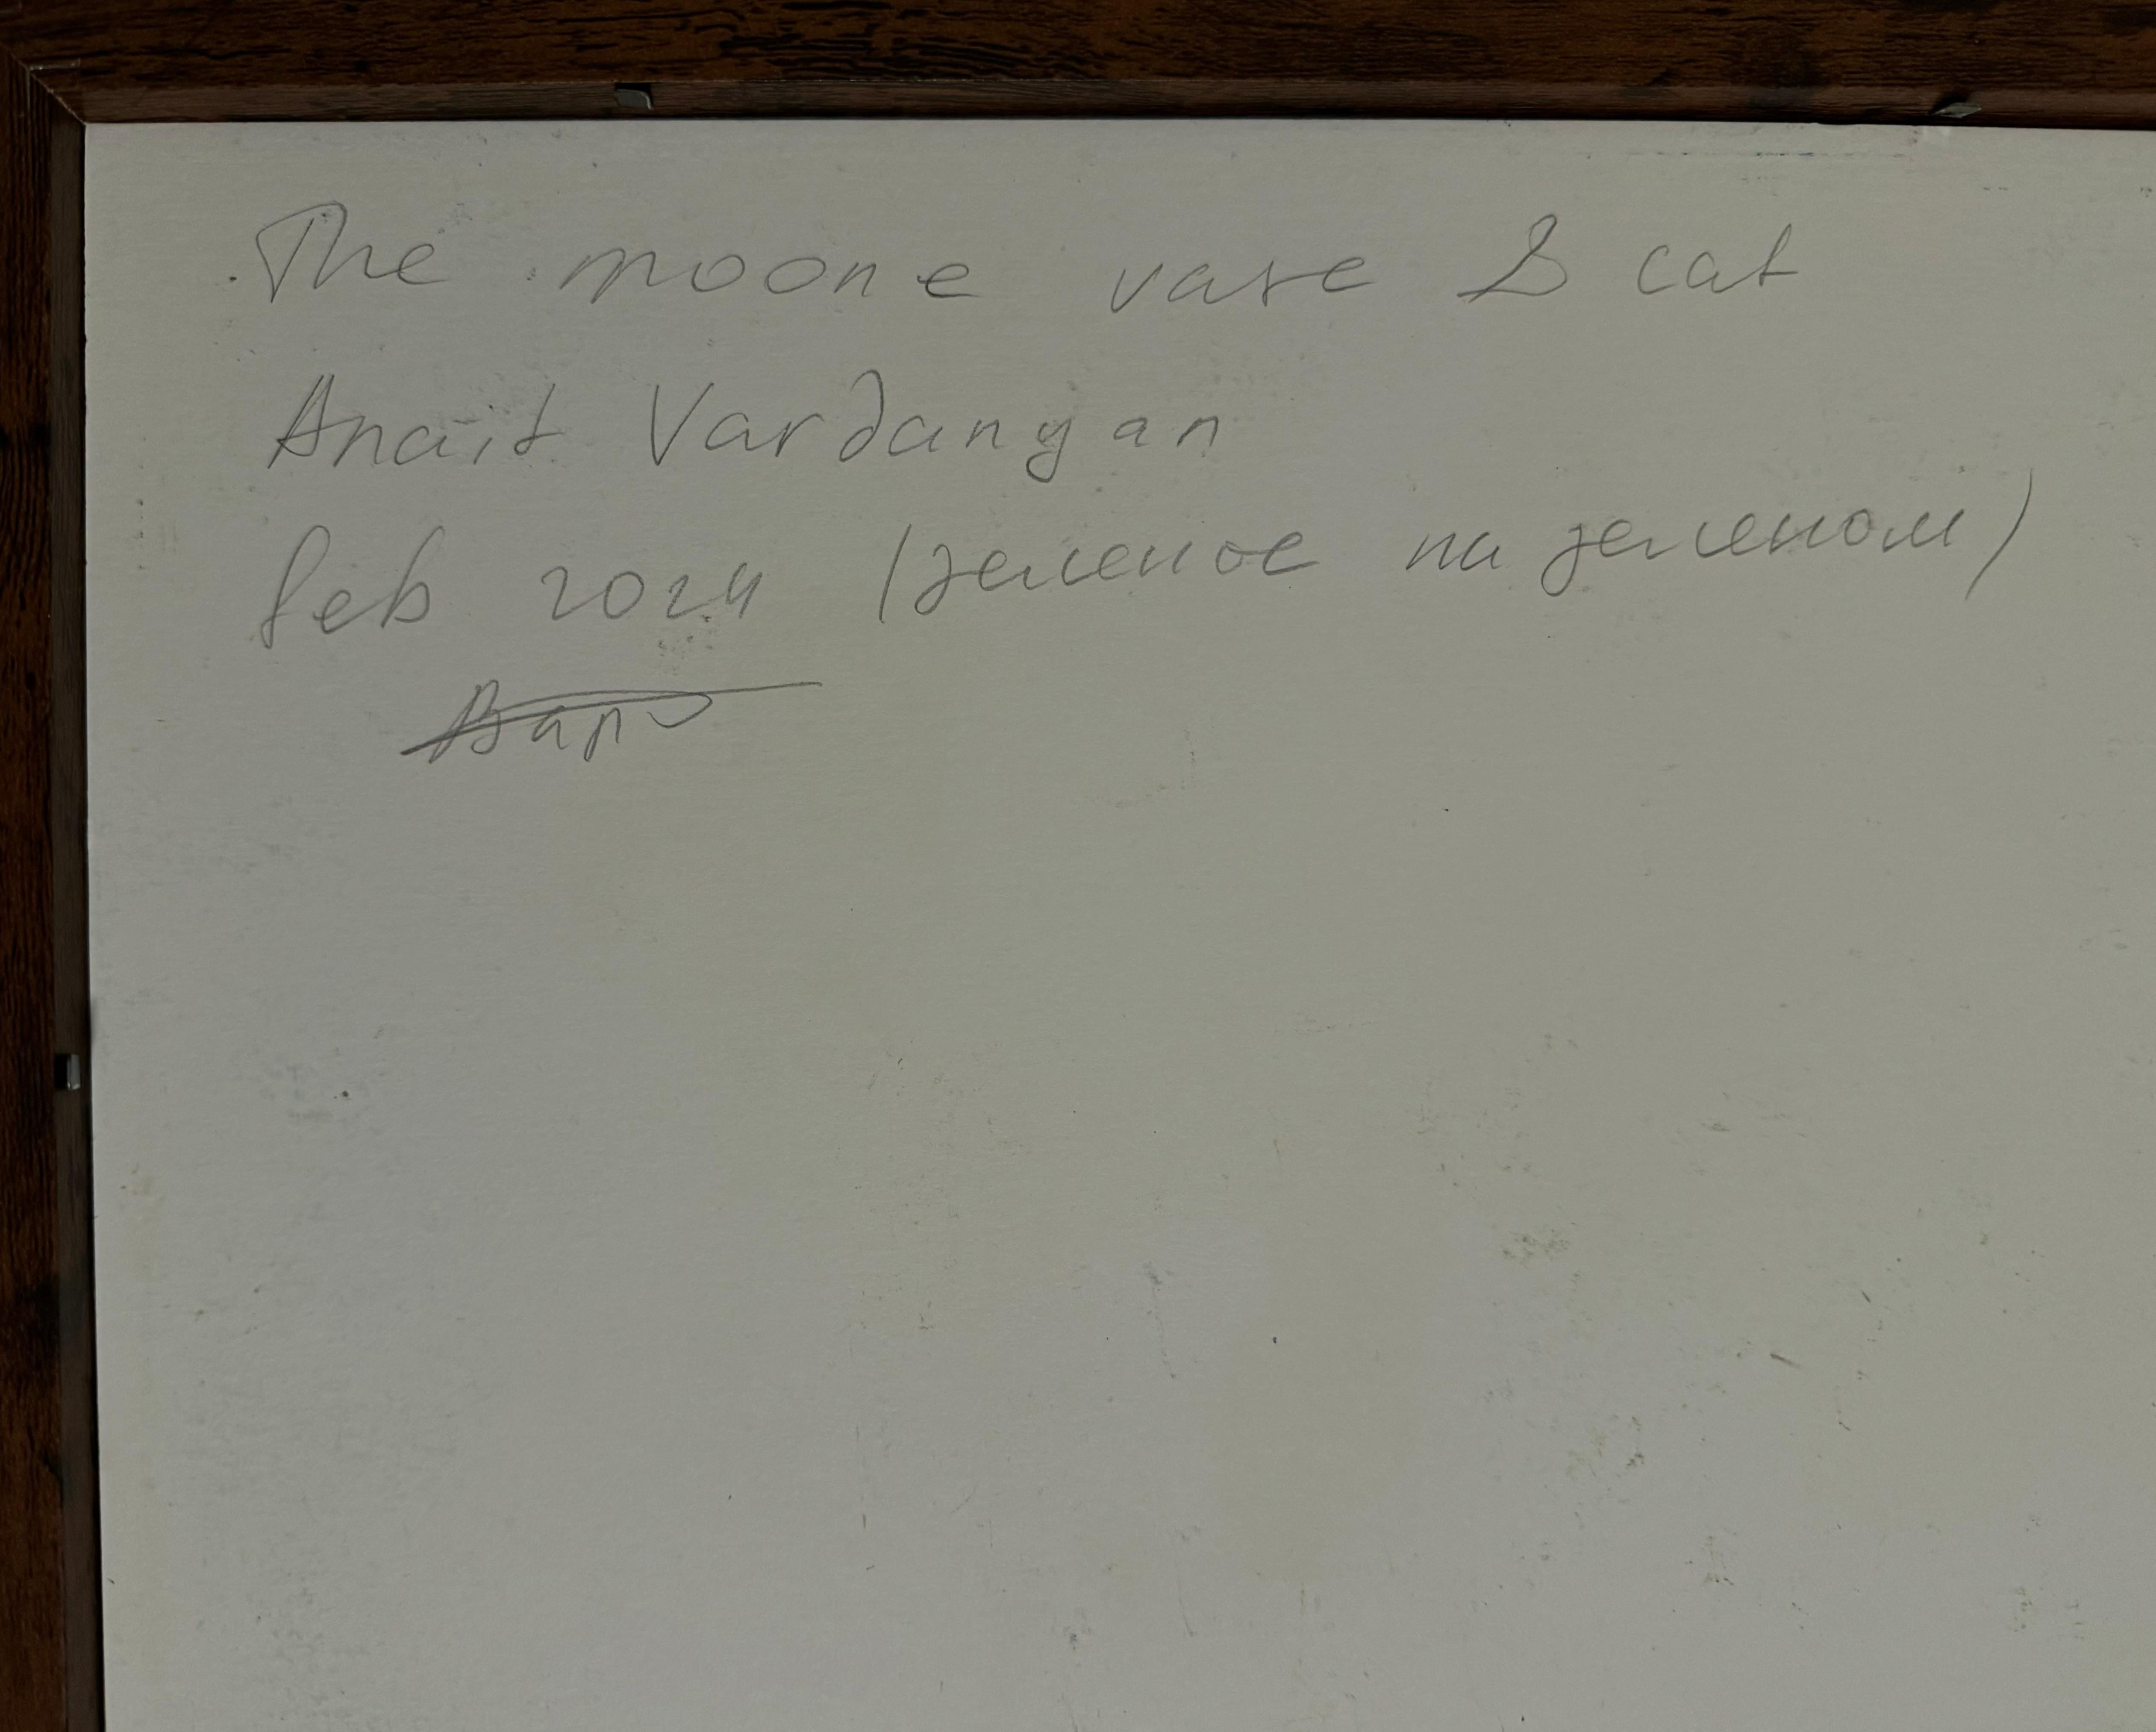 The moone vase & cat
Anait Vardanyan
feb 2024 (зеленое на зеленом)